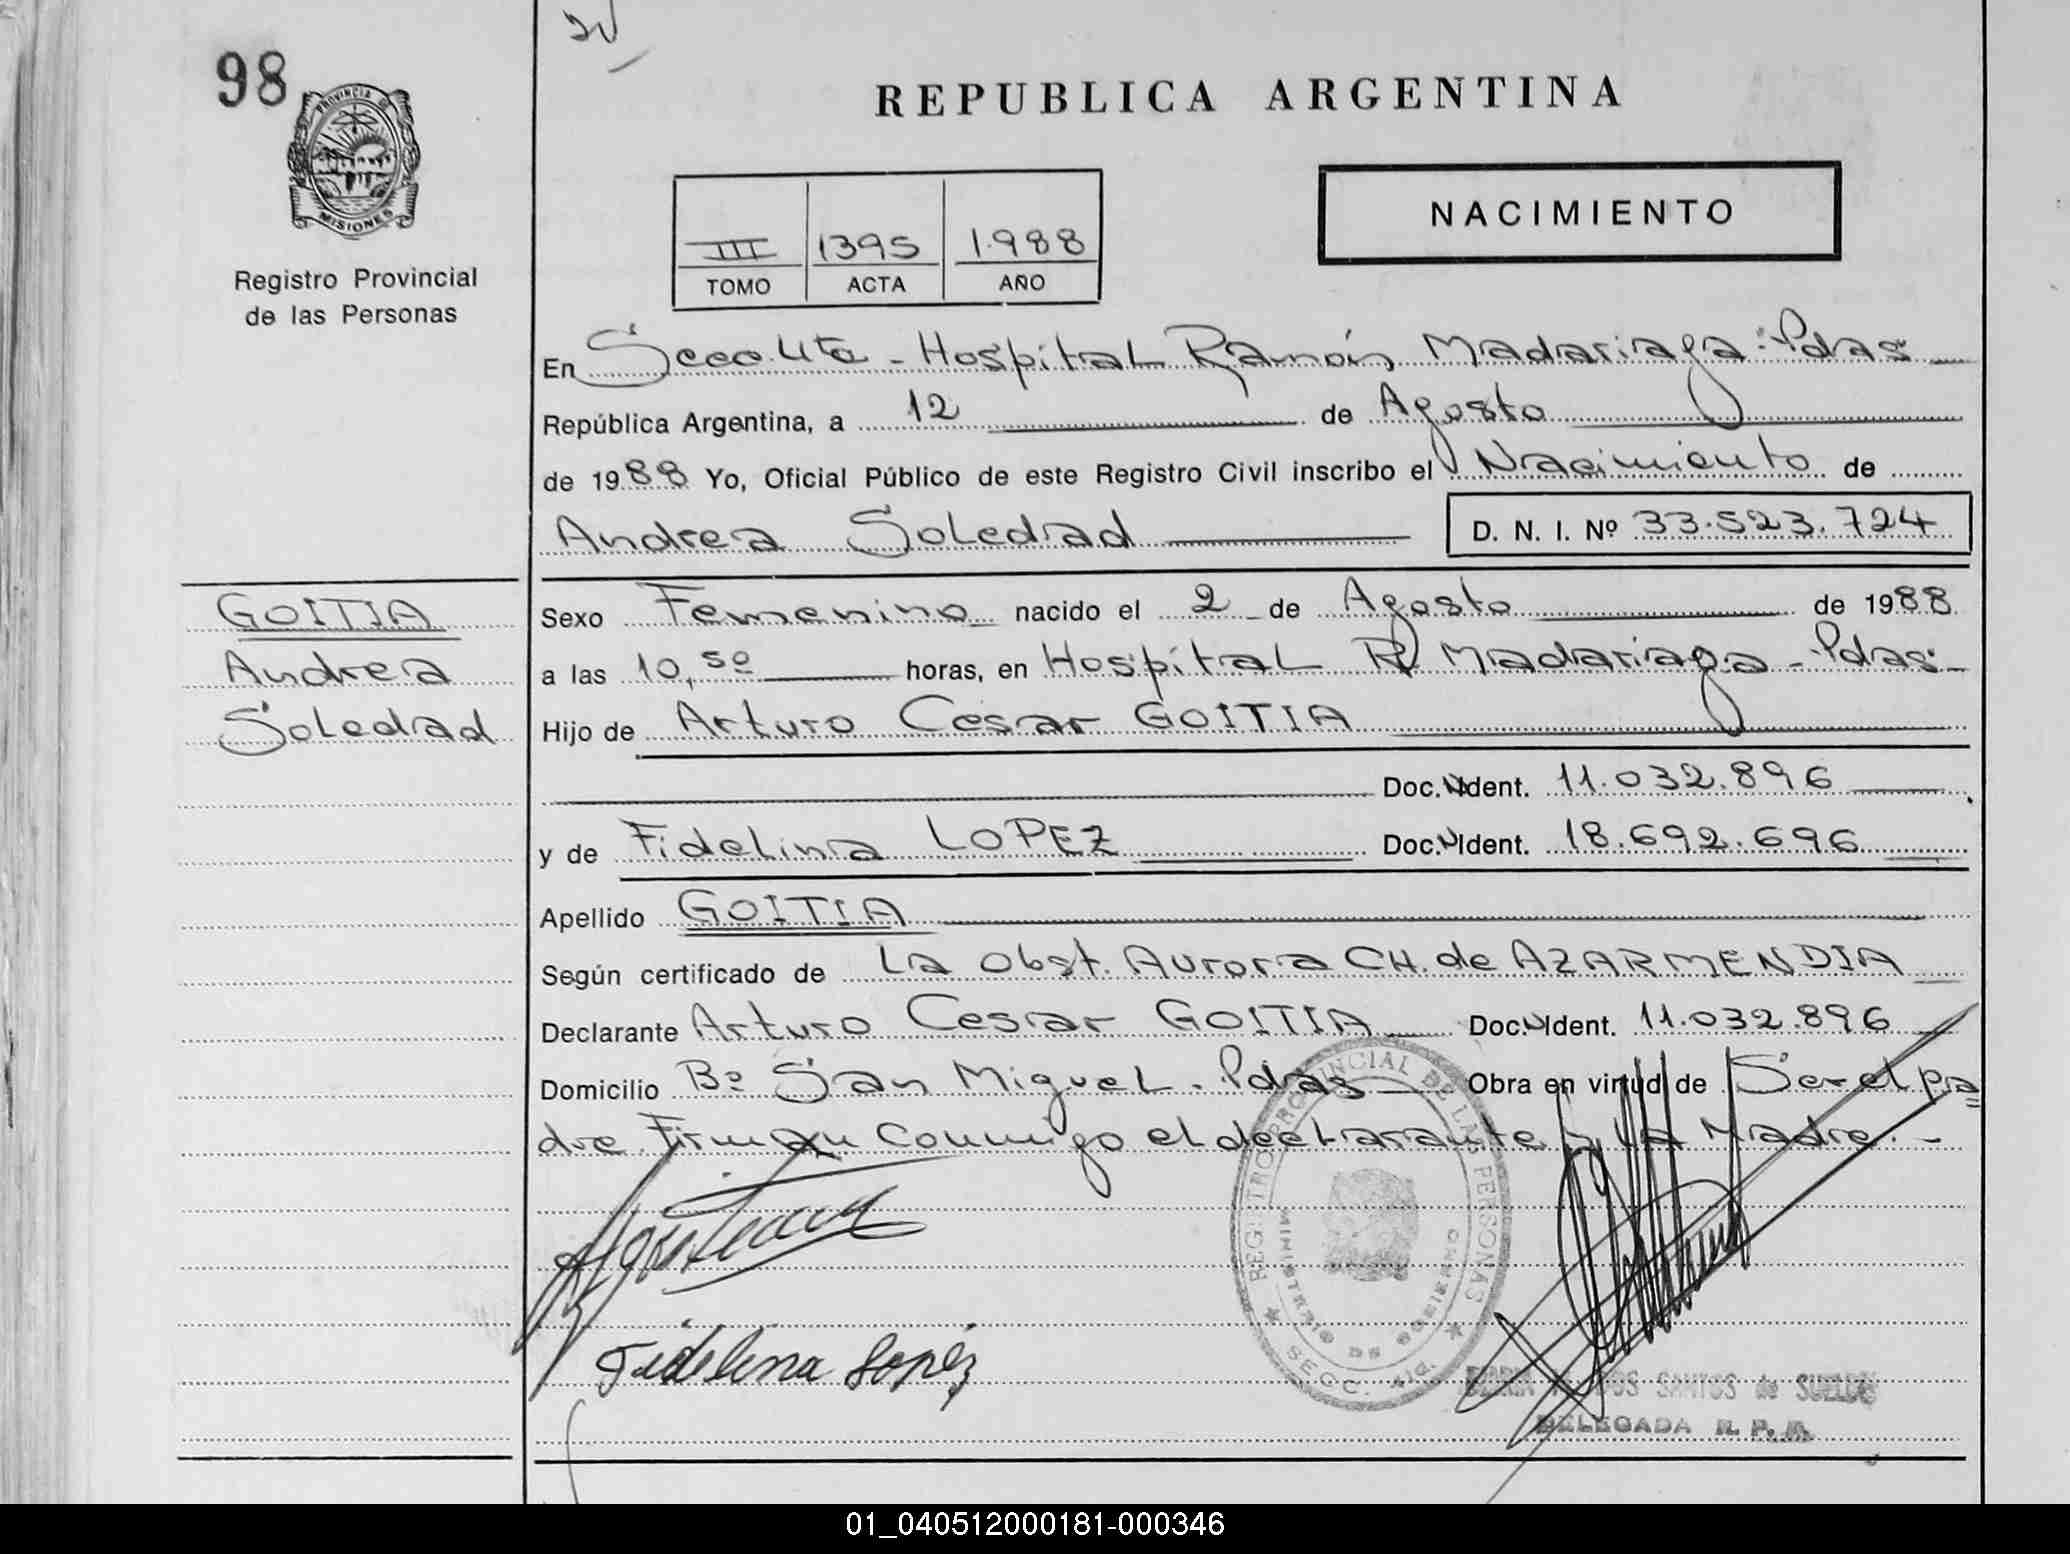 98
REPUBLICA ARGENTINA
PROVINCIA DE
MISIONES
Registro Provincial
de las Personas
NACIMIENTO
III 1395 1.988
TOMO ACTA AÑO
En Secc. 4ta - Hospital Ramón Madariaga - Pdas
República Argentina, a 12 de Agosto
de 1988 Yo, Oficial Público de este Registro Civil inscribo el Nacimiento de
Andrea Soledad D. N. I. Nº 33.523.724
GOITIA
Andrea
Soledad
Sexo Femenino nacido el 2 de Agosto de 1988
a las 10,50 horas, en Hospital R Madariaga - Pdas
Hijo de Arturo Cesar GOITIA
Doc. Ident. 11.032.896
y de Fidelina LOPEZ Doc. N Ident. 18.692.696
Apellido GOITIA
Según certificado de La Obst. Aurora CH. de AZARMENDIA
Declarante Arturo Cesar GOITIA Doc. N Ident. 11.032.896
Domicilio Bº San Miguel - Pdas Obra en virtud de Ser el pa
dre. Firman Conmigo el declarante y la Madre. -
REGISTRO PROVINCIAL DE LAS PERSONAS
MINISTERIO DE GOBIERNO
SECC. 4ta.
Fidelina Lopéz
DOS SANTOS de SUELDO
DELEGADA R. P. P.
01_040512000181-000346